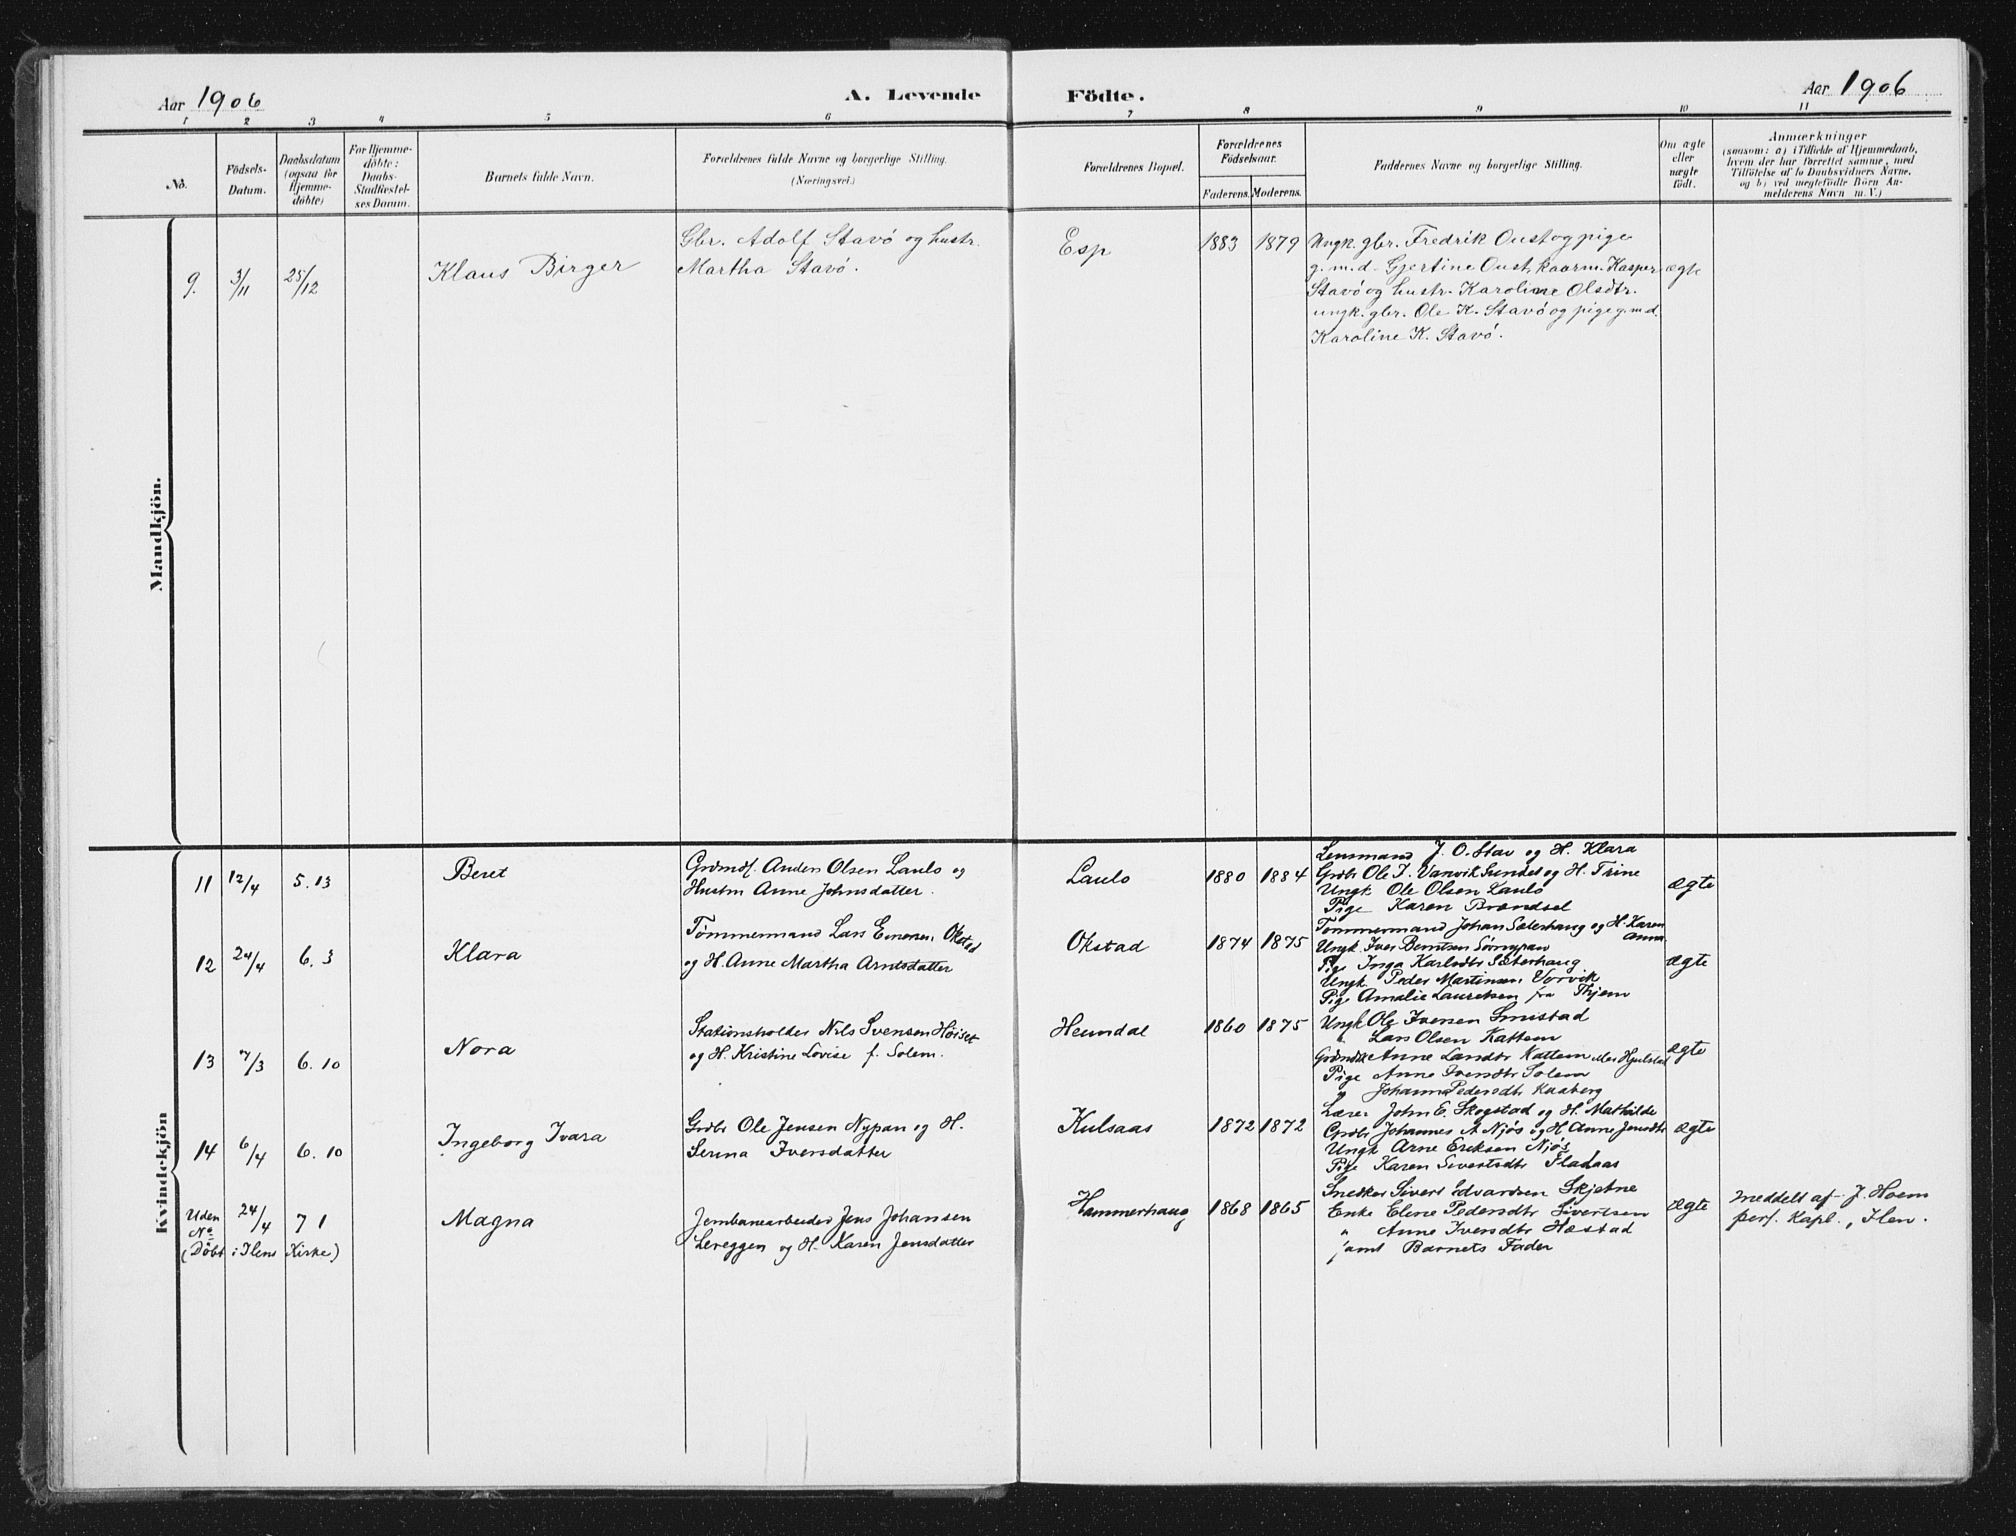 Aar 1906
A. Levende Födte.
Aar 1906
1 2 3 4 5 6 7 8 9 10 11
No.
Födsels-Datum.
Daabsdatum (ogsaa for Hjemme-döbte)
For Hjemme-döbte: Daabs-Stadfæstel-ses Datum.
Barnets fulde Navn.
Forældrenes fulde Navne og borgerlige Stilling.
(Næringsvei.)
Forældrenes Bopæl.
Forældrenes Födselsaar.
Faderens. Moderens.
Faddernes Navne og borgerlige Stilling.
Om ægte eller uægte födt.
Anmærkninger
(saasom: a) i Tilfælde af Hjemmedaab,
hvem der har forrettet samme, med
Tilföielse af to Daabsvidners Navne,
og b) ved uægtefödte Börn An-
melderens Navn m. V.)
Mandkjön.
9. 3/11 25/12
Klaus Birger
Gbr. Adolf Stavö og hustr.
Martha Stavö.
Esp
1883 1879
Ungk. gbr. Fredrik Oust og pige
g.m.d. Gjertine Oust, kaarm. Kasper
Stavö og hustr. Karoline Olsdtr.
ungk. gbr. Ole K. Stavö og pige g.m.d.
Karoline K. Stavö.
ægte
Kvindekjön
11 12/4 5.13
Beret
Grdmd. Anders Olsen Laulo og
Hustru Anne Johnsdatter.
Laulo
1880 1884
Lensmand J. O. Stav og H. Klara
Grdbr Ole J. Vanvik Sundet og H. Trine
Ungk. Ole Olsen Laulo
Pige Karen Brændsel
Ægte
12 24/4 6.3
Klara
Tømmermand Lars Einersen Okstad
og H. Anne Martha Arntsdatter
Okstad
1874 1875
Tømmermand Johan Sæterhaug og H. Karen
Anna
Ungk. Iver Berntsen Sørnypan
Pige Inga Karlsdtr Sæterhaug
Ungk. Peder Martinsen Vorvik
Pige Amalie Lauritsen fra Thjem
Ægte
13 7/3 6.10
Nora
Stationsholder Nils Svensen Höiset
og H. Kristine Lovise f. Solem.
Heimdal
1860 1875
Ungk Ole Iversen Smistad
" Lars Olsen Kattem
Anne Larsdtr Kattem Hjulstad
Pige Anne Iversdtr Solem
" Johanna Pedersdtr Kusberg
Ægte
14 6/4 6.10
Ingeborg Ivara
Grdbr Ole Jensen Nypan og H.
Serina Iversdatter
Kulsaas
1872 1872
Lærer John E. Skogstad og H. Mathilde
Grdbr Johannes A Njøs og H Anne Jensdtr
Ungk Arne Eriksen Njøs
Pige Karen Sivertsdtr Fladaas
Ægte
Uden No 24/4 7 1
(Döbt i Ilens Kirke)
Magna
Jernbanearbeider Jens Johansen
Lereggen og H. Karen Jensdatter
Hammerhaug
1868 1865
Snedker Sivert Edvardsen Skjetne
Enke Elene Pedersdtr Sivertsen
" Anne Iversdtr Hæstad
samt Barnets Fader
Ægte
Meddelt af J. Hoem
pers. Kapl., Ilen.